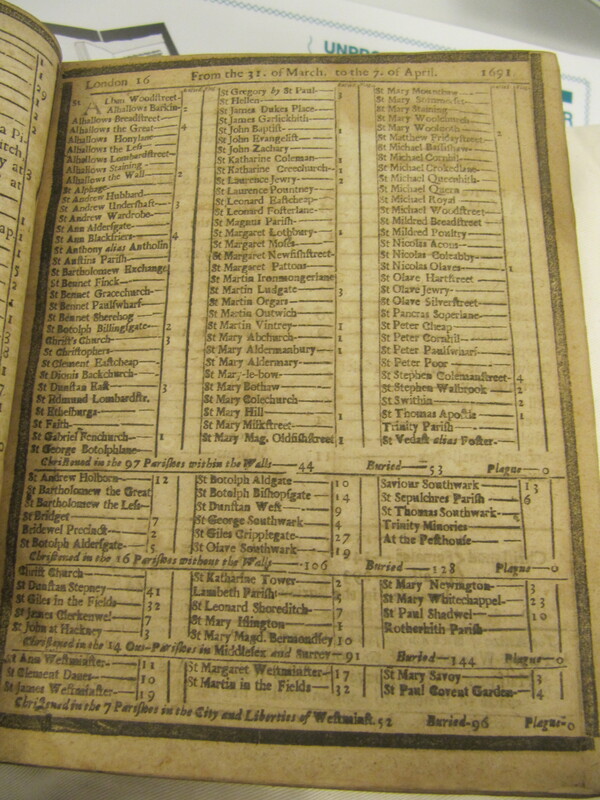 UNPRO
ER
London 16 From the 31. of March. to the 7. of April. 1691.
St Alban Woodstreet
Alhallows Barkin 2
Alhallows Breadstreet
Alhallows the Great 4
Alhallows Honylane
Alhallows the Less
Alhallows Lombardstreet
Alhallows Staining
Alhallows the Wall 2
St Alphage
St Andrew Hubbard
St Andrew Undershaft 3
St Andrew Wardrobe
St Ann Aldersgate
St Ann Blackfriers 4
St Anthony alias Antholin
St Austins Parish
St Bartholomew Exchange
St Bennet Finck
St Bennet Gracechurch
St Bennet Paulswharf
St Bennet Sherehog
St Botolph Billingsgate 2
Christ's Church 3
St Christophers
St Clement Eastcheap
St Dionis Backchurch
St Dunstan East 3
St Edmund Lombardstr.
St Ethelburga
St Faith
St Gabriel Fenchurch 1
St George Botolphlane
St Gregory by St Paul 3
St Hellen
St James Dukes Place
St James Garlickhith
St John Baptist 1
St John Evangelist
St John Zachary
St Katharine Coleman 1
St Katharine Creechurch 1
St Laurence Jewry 2
St Laurence Pountney
St Leonard Eastcheap
St Leonard Fosterlane
St Magnus Parish
St Margaret Lothbury 1
St Margaret Moses
St Margaret Newfishstreet
St Margaret Pattons
St Martin Ironmongerlane
St Martin Ludgate 3
St Martin Orgars
St Martin Outwich
St Martin Vintrey 1
St Mary Abchurch 1
St Mary Aldermanbury 1
St Mary Aldermary
St Mary-le-bow
St Mary Bothaw
St Mary Colechurch
St Mary Hill 1
St Mary Milkstreet
St Mary Mag. Oldfishstreet 1
St Mary Mounthaw
St Mary Sommerset
St Mary Staining
St Mary Woolchurch
St Mary Woolnoth 2
St Matthew Fridaystreet
St Michael Bassishaw
St Michael Cornhil
St Michael Crokedlane
St Michael Queenhith
St Michael Quern
St Michael Royal
St Michael Woodstreet
St Mildred Breadstreet
St Mildred Poultry
St Nicolas Acons
St Nicolas Coleabby
St Nicolas Olaves 1
St Olave Hartstreet
St Olave Jewry
St Olave Silverstreet
St Pancras Soperlane
St Peter Cheap
St Peter Cornhil
St Peter Paulswharf
St Peter Poor
St Stephen Colemanstreet 4
St Stephen Walbrook 2
St Swithin 2
St Thomas Apostle 1
Trinity Parish
St Vedast alias Foster
Christened in the 97 Parishes within the Walls 44 Buried 53 Plague 0
St Andrew Holborn 12
St Bartholomew the Great
St Bartholomew the Less
St Bridget 7
Bridewel Precinct 2
St Botolph Aldersgate 5
St Botolph Aldgate 10
St Botolph Bishopsgate 14
St Dunstan West 9
St George Southwark 4
St Giles Cripplegate 27
St Olave Southwark 19
Saviour Southwark 13
St Sepulchres Parish 6
St Thomas Southwark
Trinity Minories
At the Pesthouse
Christened in the 16 Parishes without the Walls 106 Buried 128 Plague 0
Christ Church
St Dunstan Stepney 41
St Giles in the Fields 32
St James Clerkenwel 7
St John at Hackney 3
St Katharine Tower 2
Lambeth Parish 5
St Leonard Shoreditch 7
St Mary Islington 1
St Mary Magd. Bermondsey 10
St Mary Newington 3
St Mary Whitechappel 23
St Paul Shadwel 10
Rotherhith Parish
Christened in the 14 Out-Parishes in Middlesex and Surrey 91 Buried 144 Plague 0
St Ann Westminster 11
St Clement Danes 10
St James Westminster 19
St Margaret Westminster 17
St Martin in the Fields 32
St Mary Savoy 3
St Paul Covent Garden 4
Christened in the 7 Parishes in the City and Liberties of Westminst. 52 Buried 96 Plague 0